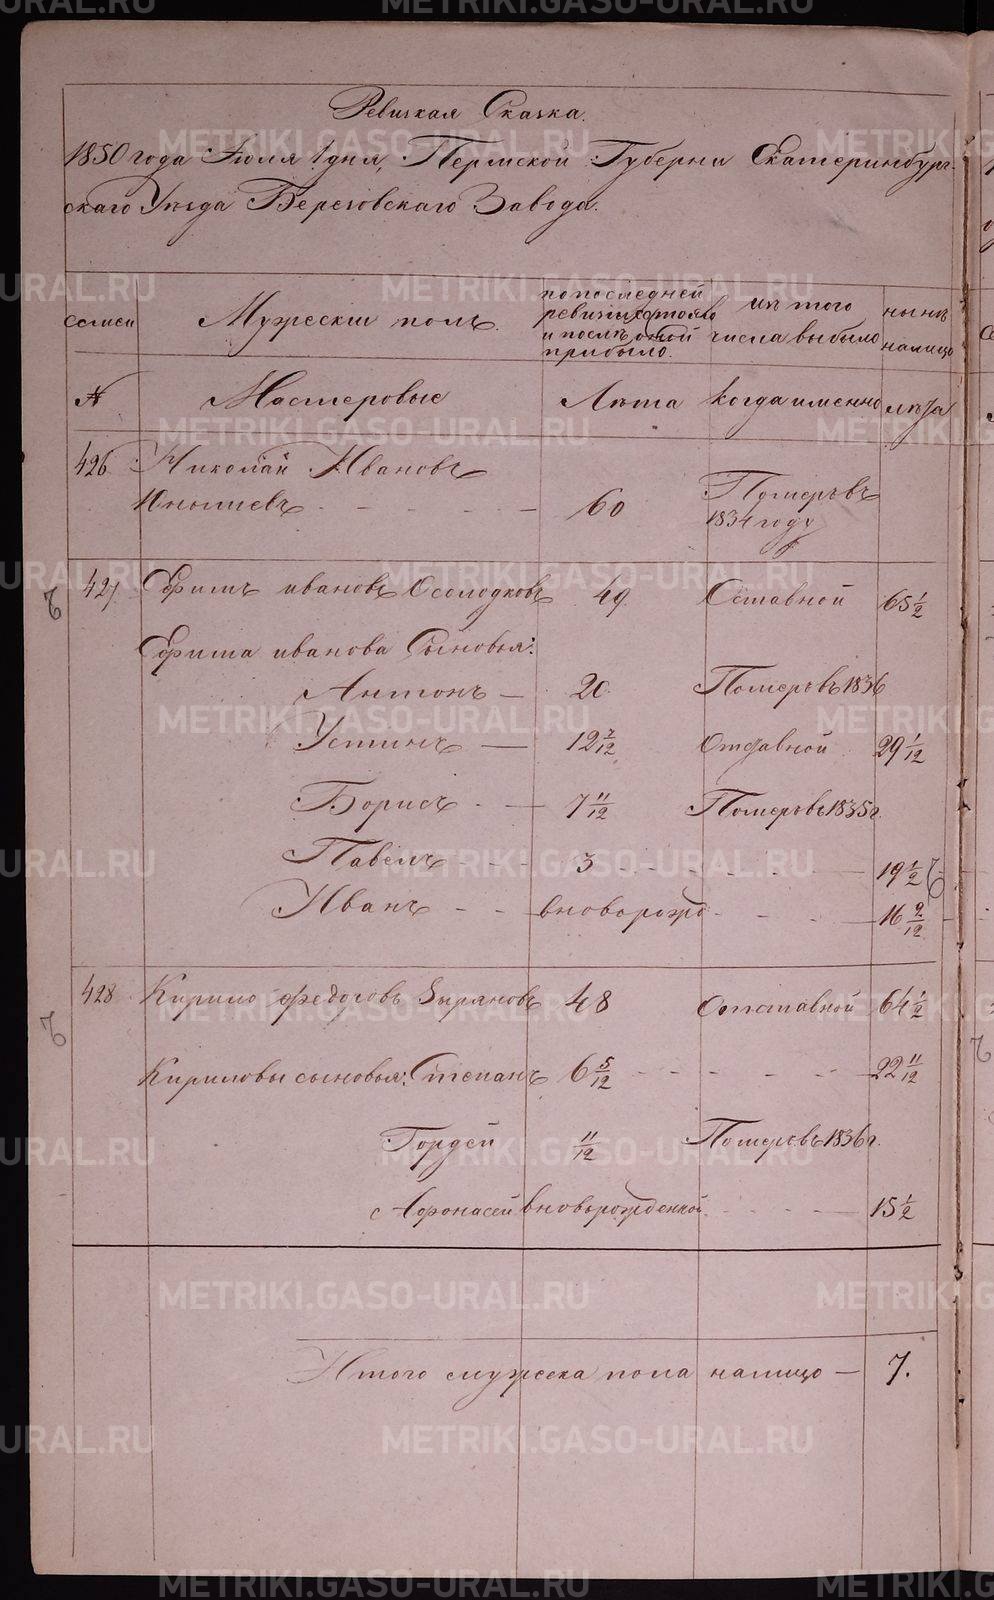 Ревизкая Сказка.
1850 года Июля 1 дня, Пермской Губерни Екатеринбург-
скаго Уѣзда Березовскаго Завода.
семьи
Мужески полъ.
по последней ревизии состояло и послѣ оной прибыло.
изъ того числа выбыло
нынѣ налицо
№
Мастеровые
Лѣта
когда именно
лѣта
426 Николай Ивановъ
60 Померъ въ
1834 году
427 Ефимъ ивановъ Осолодковъ 49 Отставной 65 1/2
Ефима иванова Сыновья:
Антонъ — 20. Померъ въ 1836
Устинъ — 12 7/12 Отставной 29 1/12
Борисъ — 7 11/12 Померъ въ 1835 г.
Павелъ 3 19 1/2
Иванъ вноворожд 16 2/12
428 Кирило Федоровъ Зыряновъ 48 Отставной 64 1/2
Кириловы сыновья: Степанъ 6 5/12 22 11/12
Гордей 11/12 Померъ въ 1836 г.
Афонасей вноворожденной 15 1/2
Итого мужеска пола налицо — 7.
METRIKI.GASO-URAL.RU